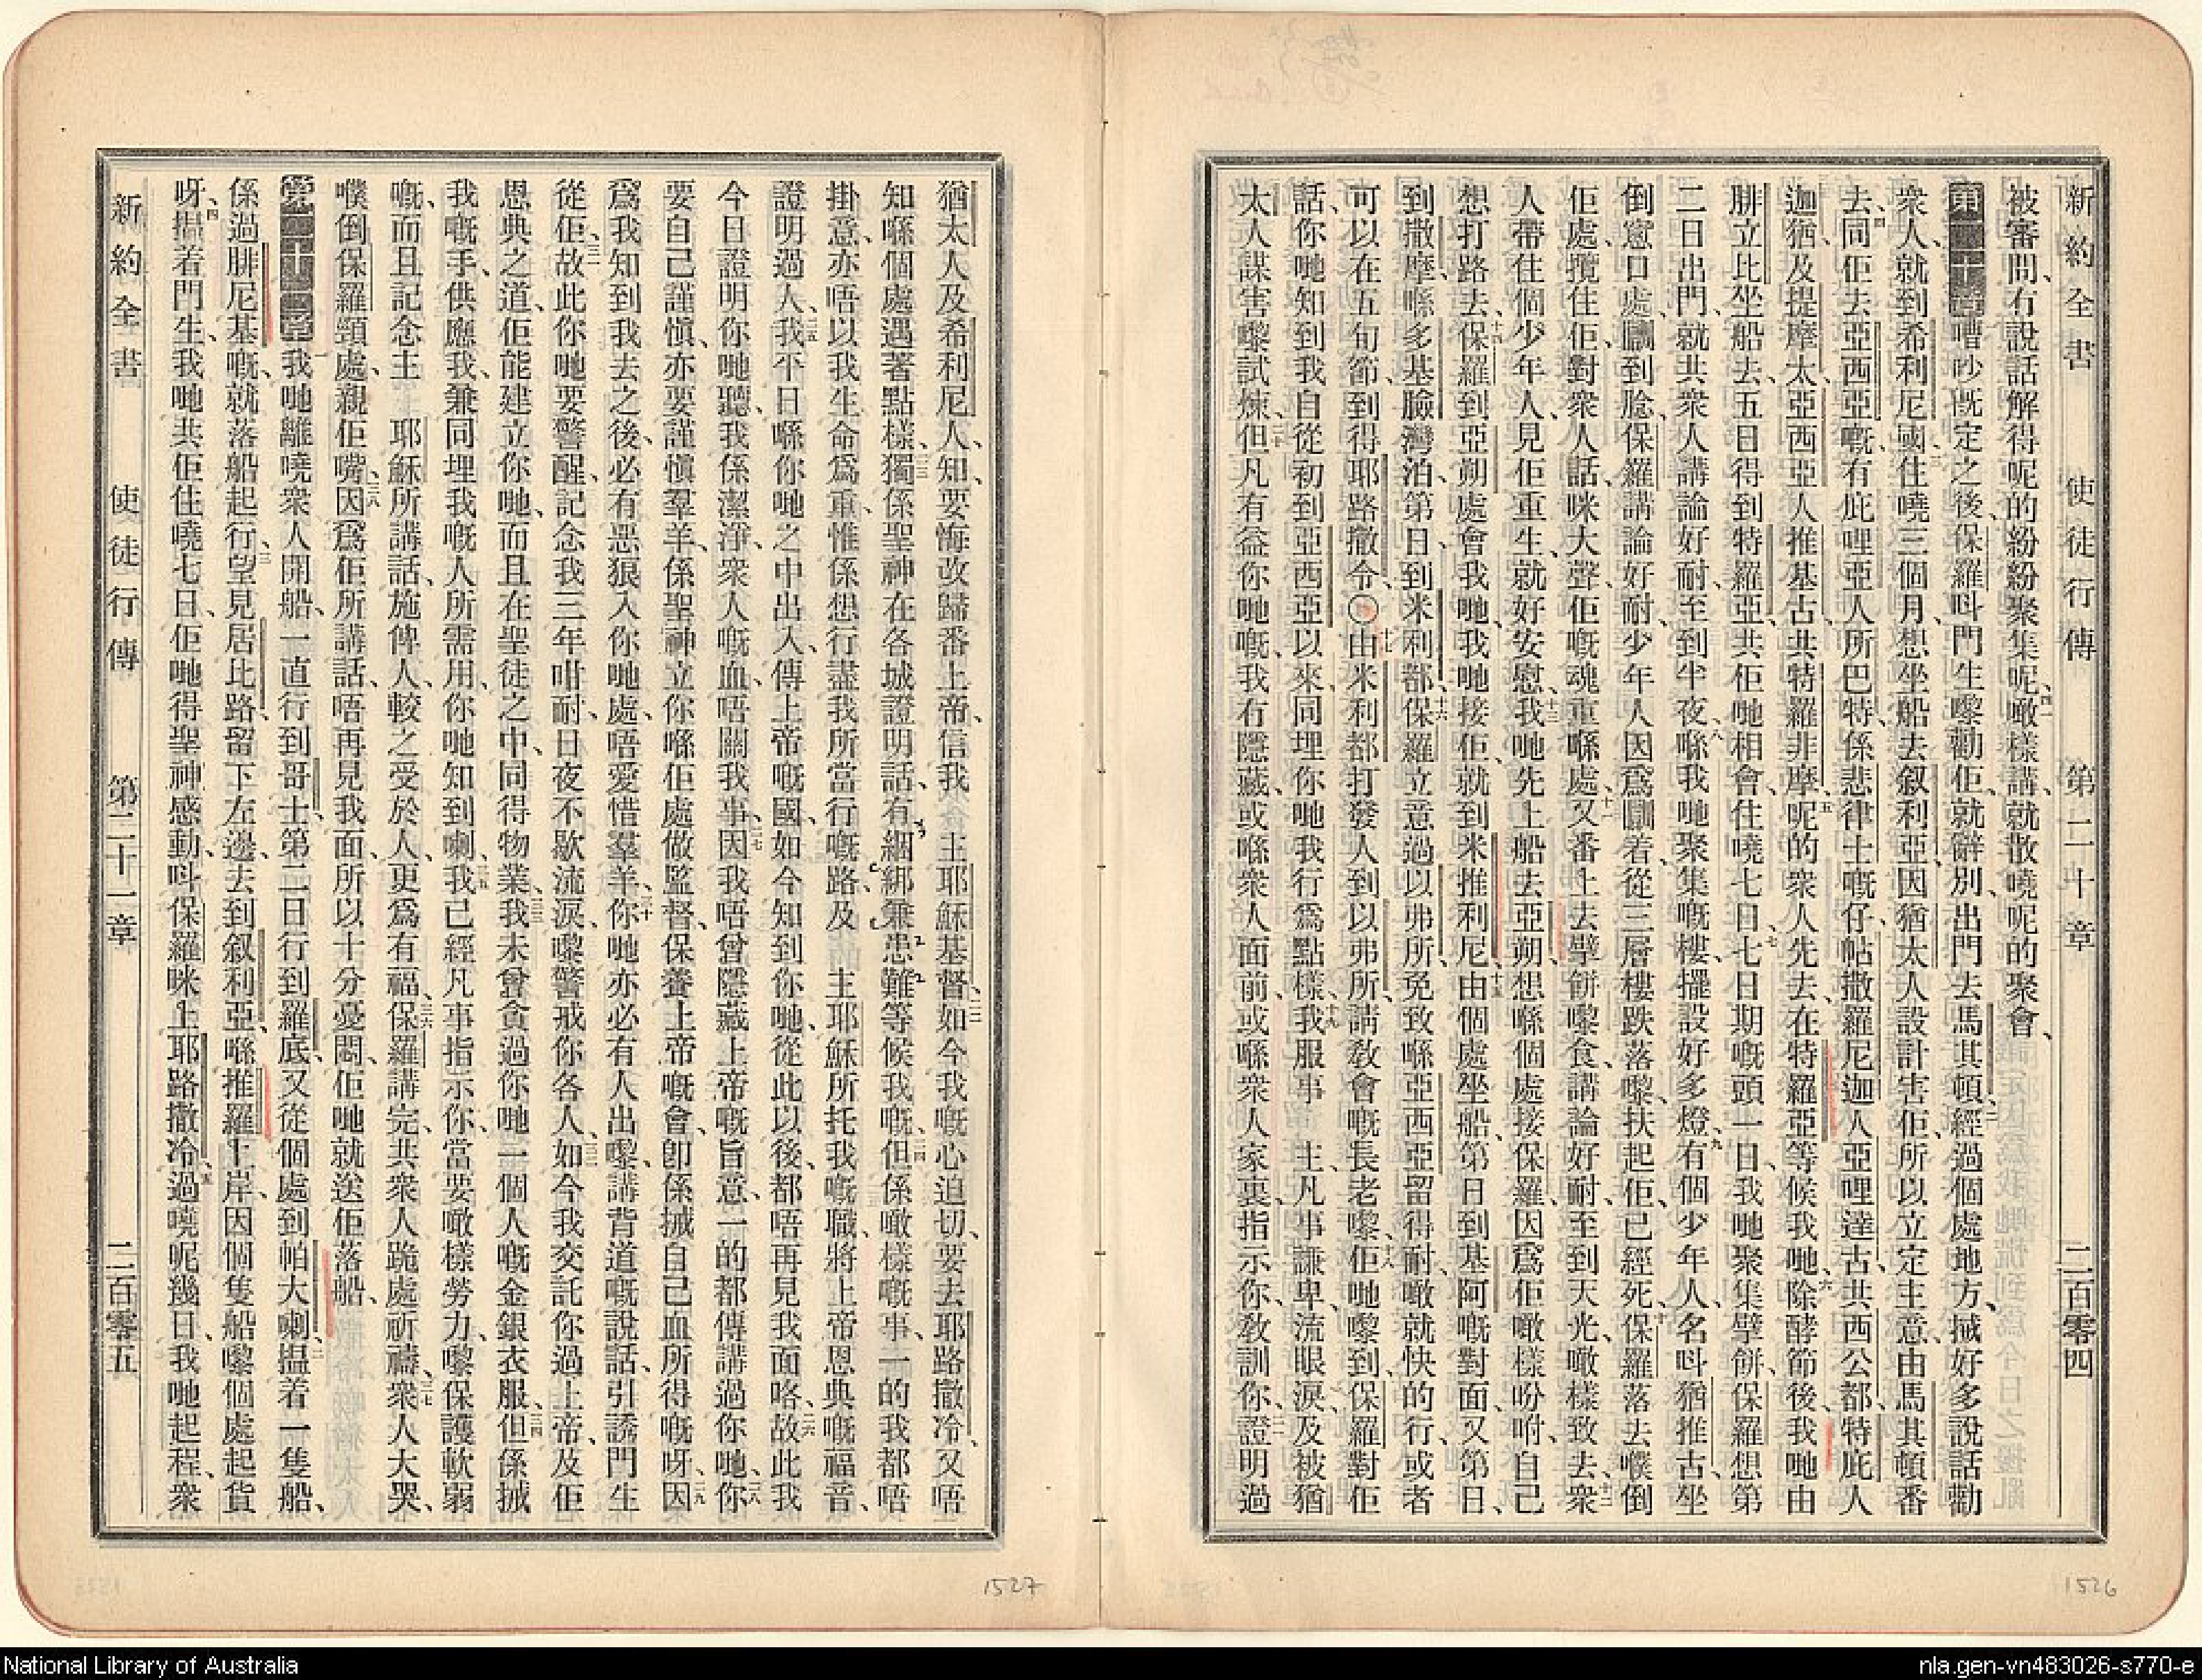 新約全書 使徒行傳 第二十章 二百零四
被審問、冇說話解得呢的紛紛聚集呢、噉樣講、就散嘵呢的聚會、
第二十章 嘈吵既定之後、保羅呌門生嚟勸佢、就辭別、出門去馬其頓、經過個處地方、摵好多說話勸
衆人、就到希利尼國、住嘵三個月、想坐船去叙利亞、因猶太人設計害佢、所以立定主意、由馬其頓番
去、同佢去亞西亞嘅、有庇哩亞人所巴特、係悲律士嘅仔、帖撒羅尼迦人亞哩達古、共西公都、特庇人
迦猶、及提摩太、亞西亞人推基古、共特羅非摩、呢的衆人先去、在特羅亞等候我哋、除酵節後、我哋由
腓立比坐船去、五日得到特羅亞、共佢哋相會、住嘵七日、七日期嘅頭一日、我哋聚集擘餅、保羅想第
二日出門、就共衆人講論好耐、至到半夜、喺我哋聚集嘅樓、擺設好多燈、有個少年人、名呌猶推古、坐
倒窻口處、瞓到腍、保羅講論好耐、少年人因爲瞓着、從三層樓跌落嚟、扶起佢、已經死、保羅落去㗻倒
佢處、攬住佢、對衆人話、咪大聲、佢嘅魂重喺處、又番上去、擘餅嚟食、講論好耐、至到天光、噉樣致去、衆
人帶住個少年人、見佢重生、就好安慰、我哋先上船去亞朔、想喺個處接保羅、因爲佢噉樣吩咐、自己
想打路去、保羅到亞朔處會我哋、我哋接佢、就到米推利尼、由個處坐船、第日到基阿嘅對面、又第日、
到撒摩、喺多基臉灣泊、第日、到米利都、保羅立意過以弗所、免致喺亞西亞留得耐、噉就快的行、或者
可以在五旬節、到得耶路撒冷、〇由米利都打發人到以弗所、請敎會嘅長老嚟、佢哋嚟到、保羅對佢
話、你哋知到我自從初到亞西亞以來、同埋你哋、我行爲點樣、我服事 主、凡事謙卑、流眼淚、及被猶
太人謀害嚟試煉、但凡有益你哋嘅、我冇隱藏、或喺衆人面前、或喺衆人家裏、指示你、敎訓你、證明過
1526
新約全書 使徒行傳 第二十一章 二百零五
猶太人及希利尼人、知要悔改歸番上帝、信我 主耶穌基督、如今我嘅心迫切、要去耶路撒冷、又唔
知喺個處遇著點樣、獨係聖神在各城證明話、有綑綁兼患難等候我嘅、但係噉樣嘅事、一的我都唔
掛意、亦唔以我生命爲重、惟係想行盡我所當行嘅路、及 主耶穌所托我嘅職、將上帝恩典嘅福音、
證明過人、我平日喺你哋之中出入、傳上帝嘅國、如今知到你哋、從此以後、都唔再見我面咯、故此我
今日證明你哋聽、我係潔淨、衆人嘅血、唔關我事、因我唔曾隱藏上帝嘅旨意、一的都傳講過你哋、你
要自己謹愼、亦要謹愼羣羊、係聖神立你喺佢處做監督、保養上帝嘅會、卽係摵自己血所得嘅呀、因
爲我知到我去之後、必有惡狼入你哋處、唔愛惜羣羊、你哋亦必有人出嚟、講背道嘅說話、引誘門生
從佢、故此你哋要警醒、記念我三年咁耐、日夜不歇流淚、嚟警戒你各人、如今我交託你過上帝、及佢
恩典之道、佢能建立你哋、而且在聖徒之中、同得物業、我未曾貪過你哋一個人嘅金銀衣服、但係摵
我嘅手、供應我、兼同埋我嘅人所需用、你哋知到喇、我已經凡事指示你、當要噉樣勞力、嚟保護軟弱
嘅、而且記念主 耶穌所講話、施俾人、較之受於人、更爲有福、保羅講完、共衆人跪處祈禱、衆人大哭、
㗻倒保羅頸處、親佢嘴、因爲佢所講話、唔再見我面、所以十分憂悶、佢哋就送佢落船、
第二十一章 我哋離嘵衆人開船、一直行到哥士、第二日行到羅底、又從個處到帕大喇、揾着一隻船、
係過腓尼基嘅、就落船起行、望見居比路、留下左邊、去到叙利亞、喺推羅上岸、因個隻船嚟個處起貨
呀、揾着門生、我哋共佢住嘵七日、佢哋得聖神感動、呌保羅咪上耶路撒冷、過嘵呢幾日、我哋起程、衆
1527
National Library of Australia
nla.gen-vn483026-s770-e